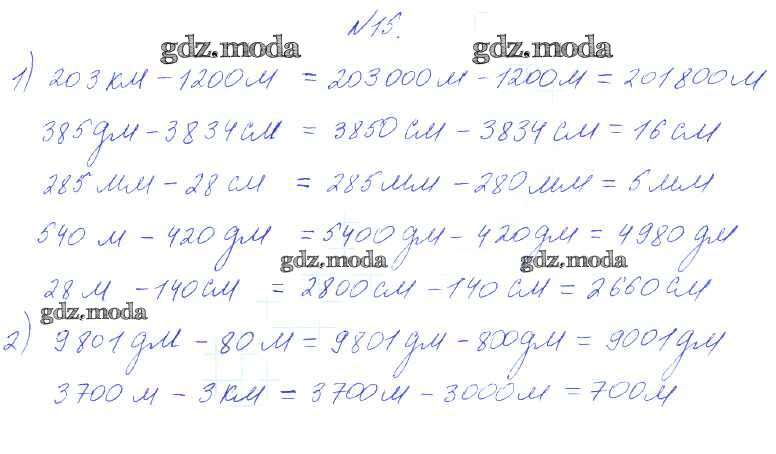 №15.
gdz.moda gdz.moda
1) 203 км - 1200 м = 203000 м - 1200 м = 201800 м
385 дм - 3834 см = 3850 см - 3834 см = 16 см
285 мм - 28 см = 285 мм - 280 мм = 5 мм
540 м - 420 дм = 5400 дм - 420 дм = 4980 дм
gdz.moda gdz.moda
28 м - 140 см = 2800 см - 140 см = 2660 см
gdz.moda
2) 9801 дм - 80 м = 9801 дм - 800 дм = 9001 дм
3700 м - 3 км = 3700 м - 3000 м = 700 м